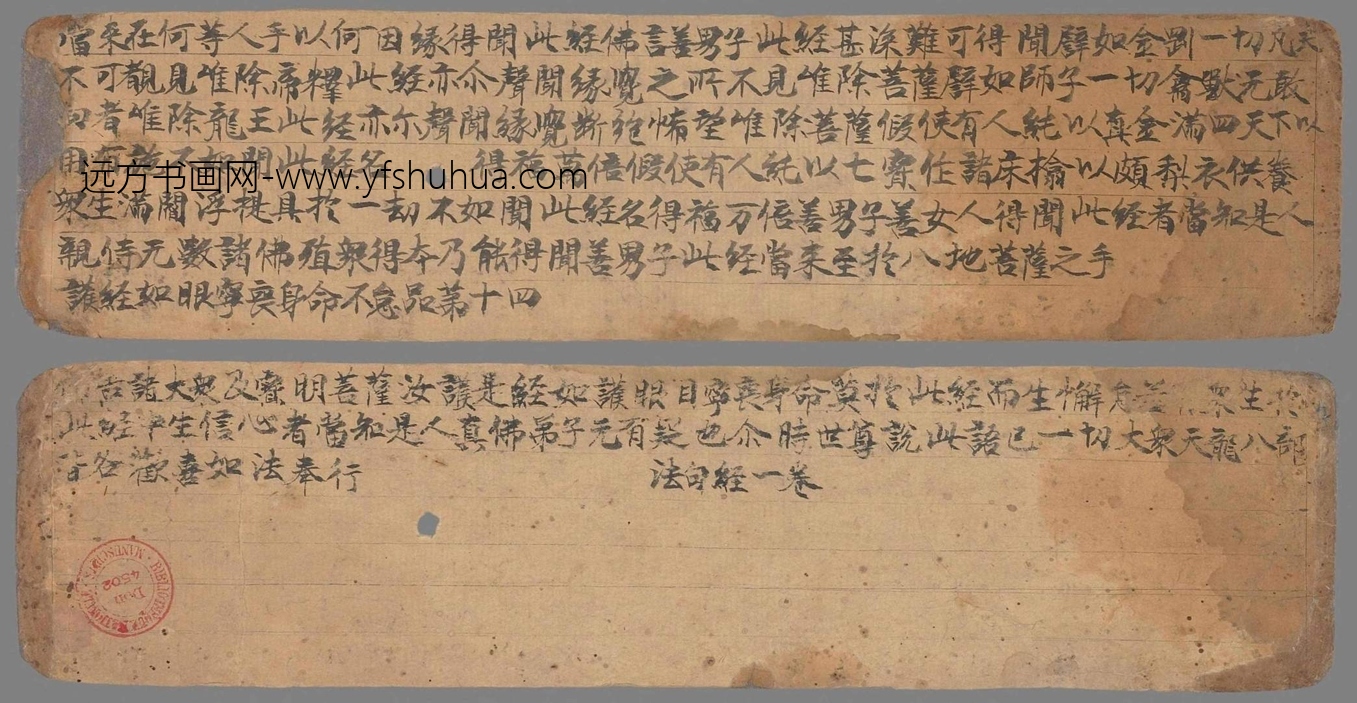 當來在何等人手以何因緣得聞此經佛言善男子此經甚深難可得聞譬如金剛一切凡夫
不可覩見唯除帝釋此經亦尒聲聞緣覺之所不見唯除菩薩譬如師子一切禽獸无敢
向者唯除龍王此經亦尔聲聞緣覺斷絶悕望唯除菩薩假使有人純以真金滿四天下以
用 聞此經名 得福 倍假使有人純以七寶 諸床 以頗梨衣供養
远方书画网-www.yfshuhua.com
衆生滿閻浮提具於一劫不如聞此經名得福万倍善男子善女人得聞此經者當知是人
親侍元數諸佛殖衆得本乃能得聞善男子此經當來至於八地菩薩之手
護經如眼寧喪身命不怠品第十四
告諸大衆及寶明菩薩汝護是經如護眼目寧喪身命莫於此經而生懈怠 衆生
此經中生信心者當知是人真佛弟子元有 也尒時世尊說此語已一切大衆天龍八部
皆各歡喜如法奉行 法句經一卷
BIBLIOTHÈQUE NATIONALE MANUSCRITS
Don
4502